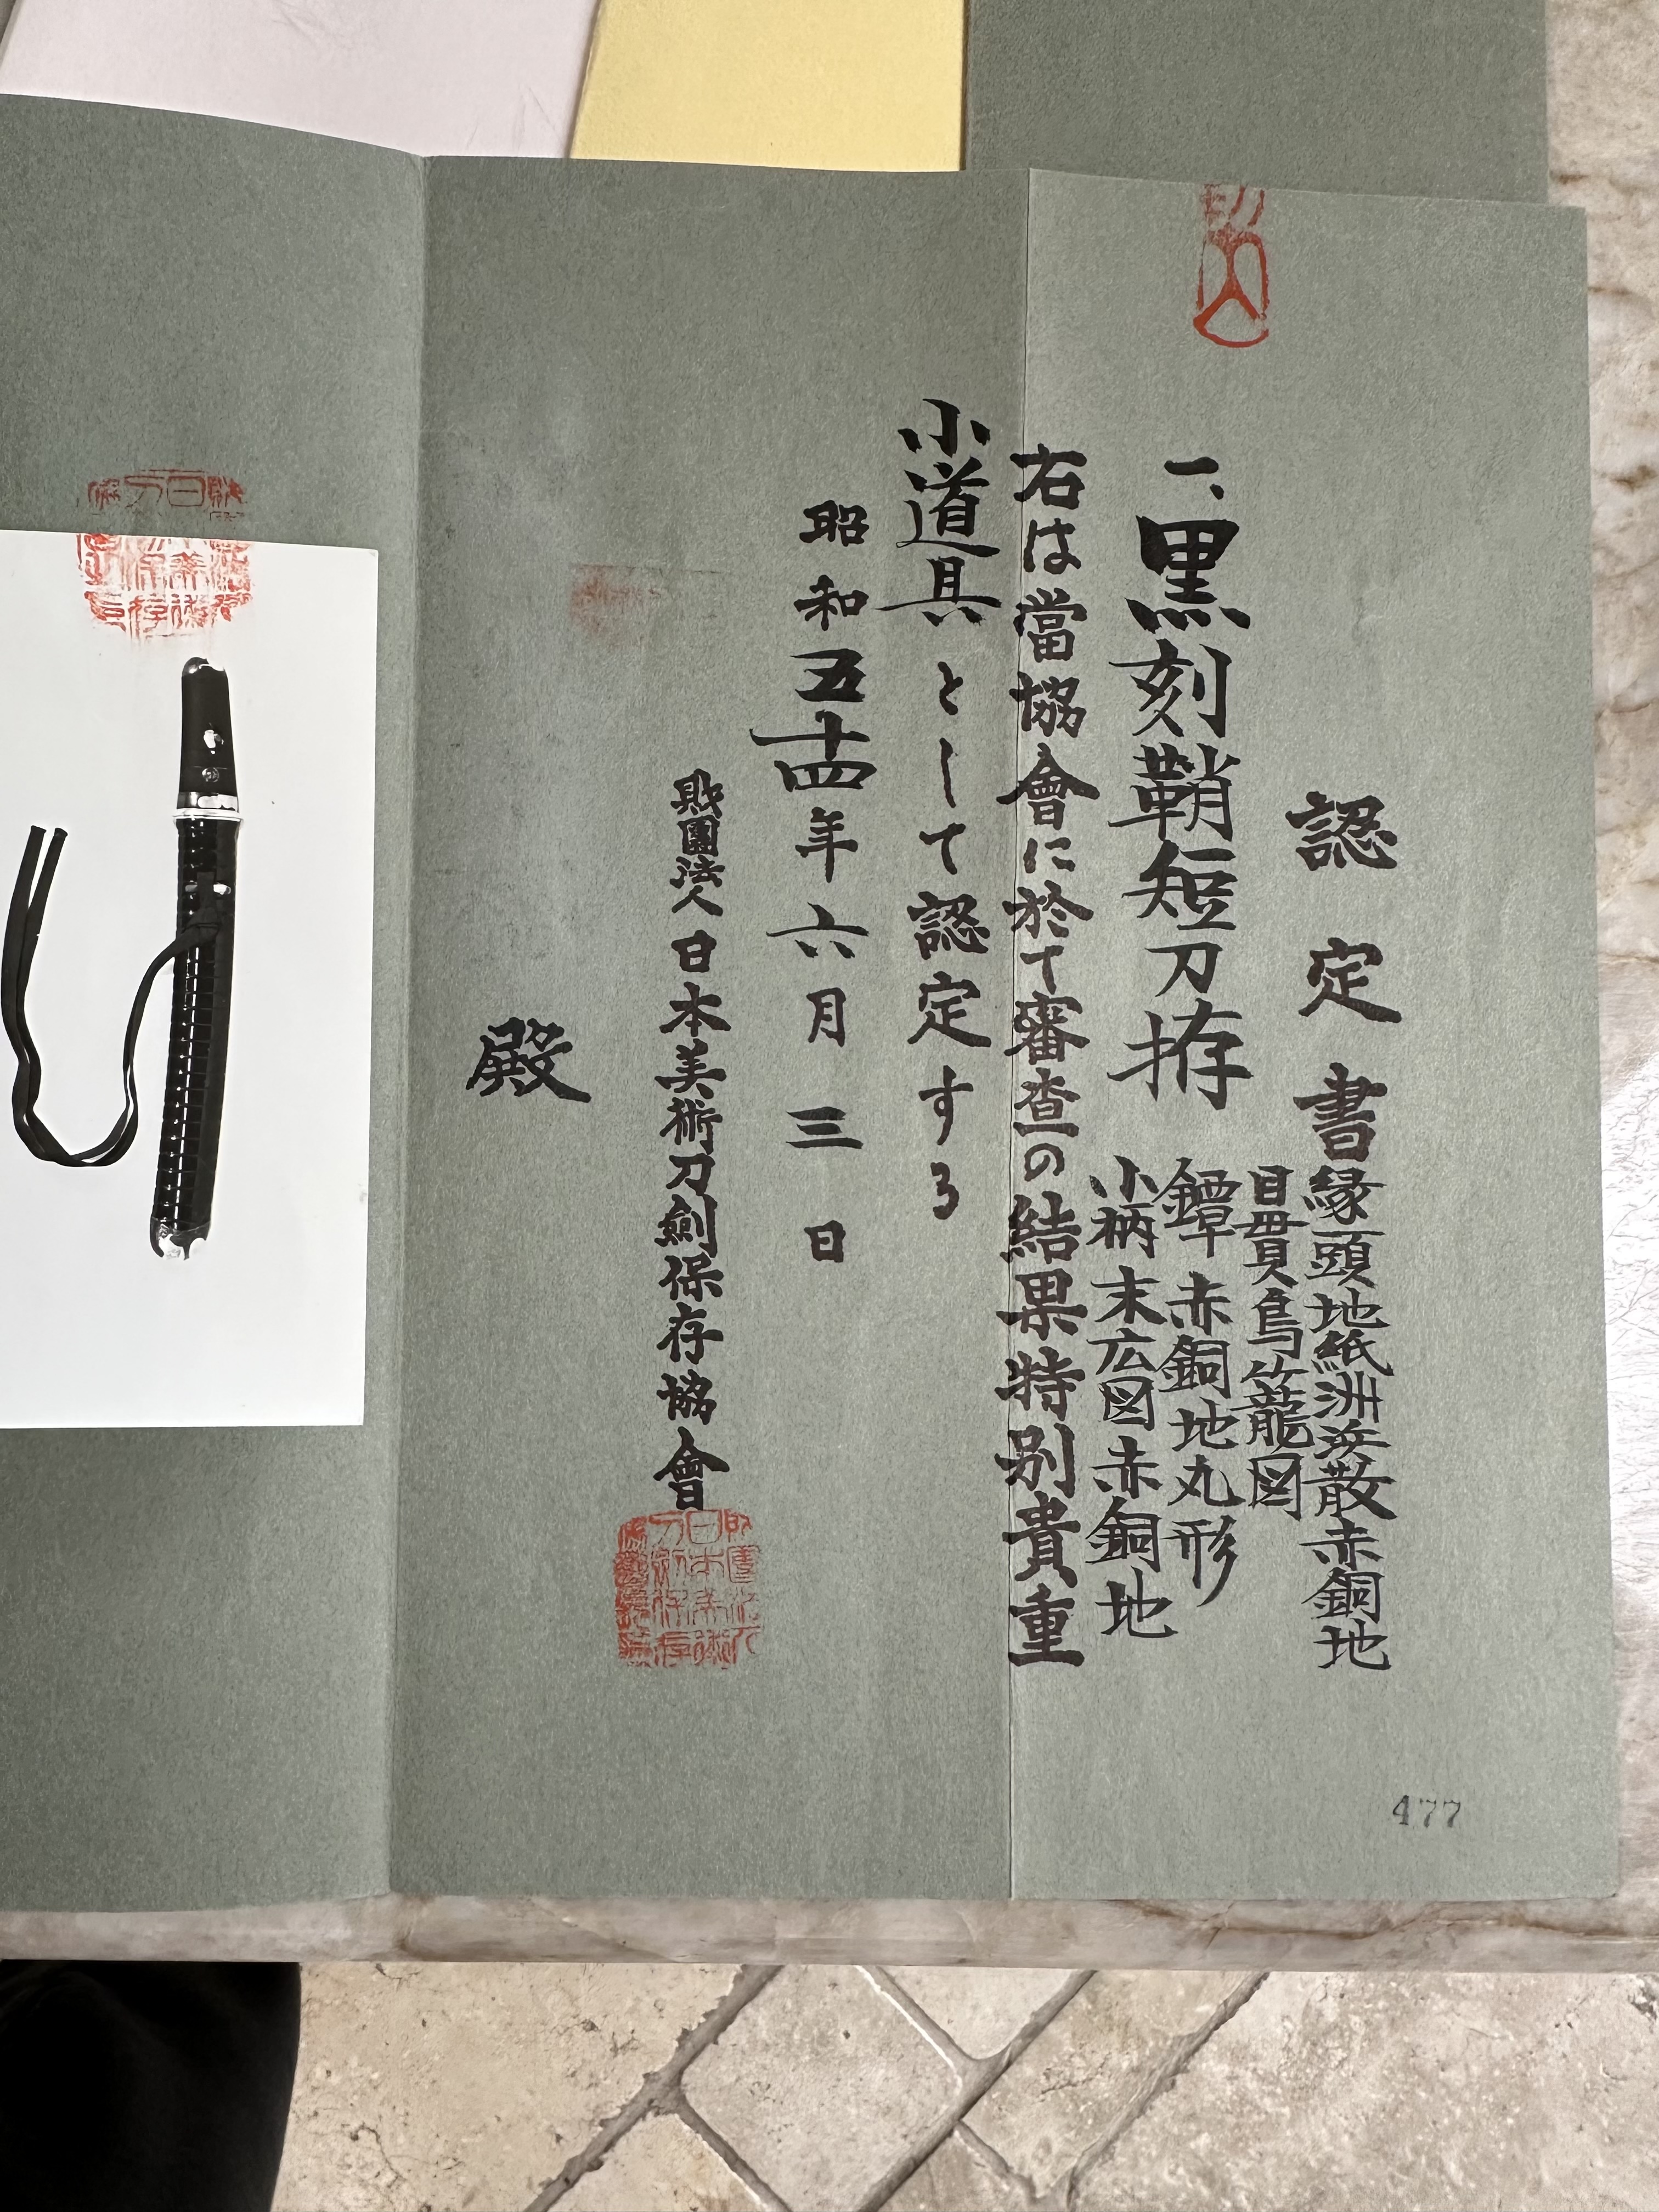 認定書
一、黒刻鞘短刀拵
縁頭地紙洲浜散赤銅地
目貫鳥籠図
鐔赤銅地丸形
小柄末広図赤銅地
右は當協會に於て審査の結果特別貴重
小道具として認定する
昭和五十四年六月三日
財團法人日本美術刀劍保存協會
殿
477